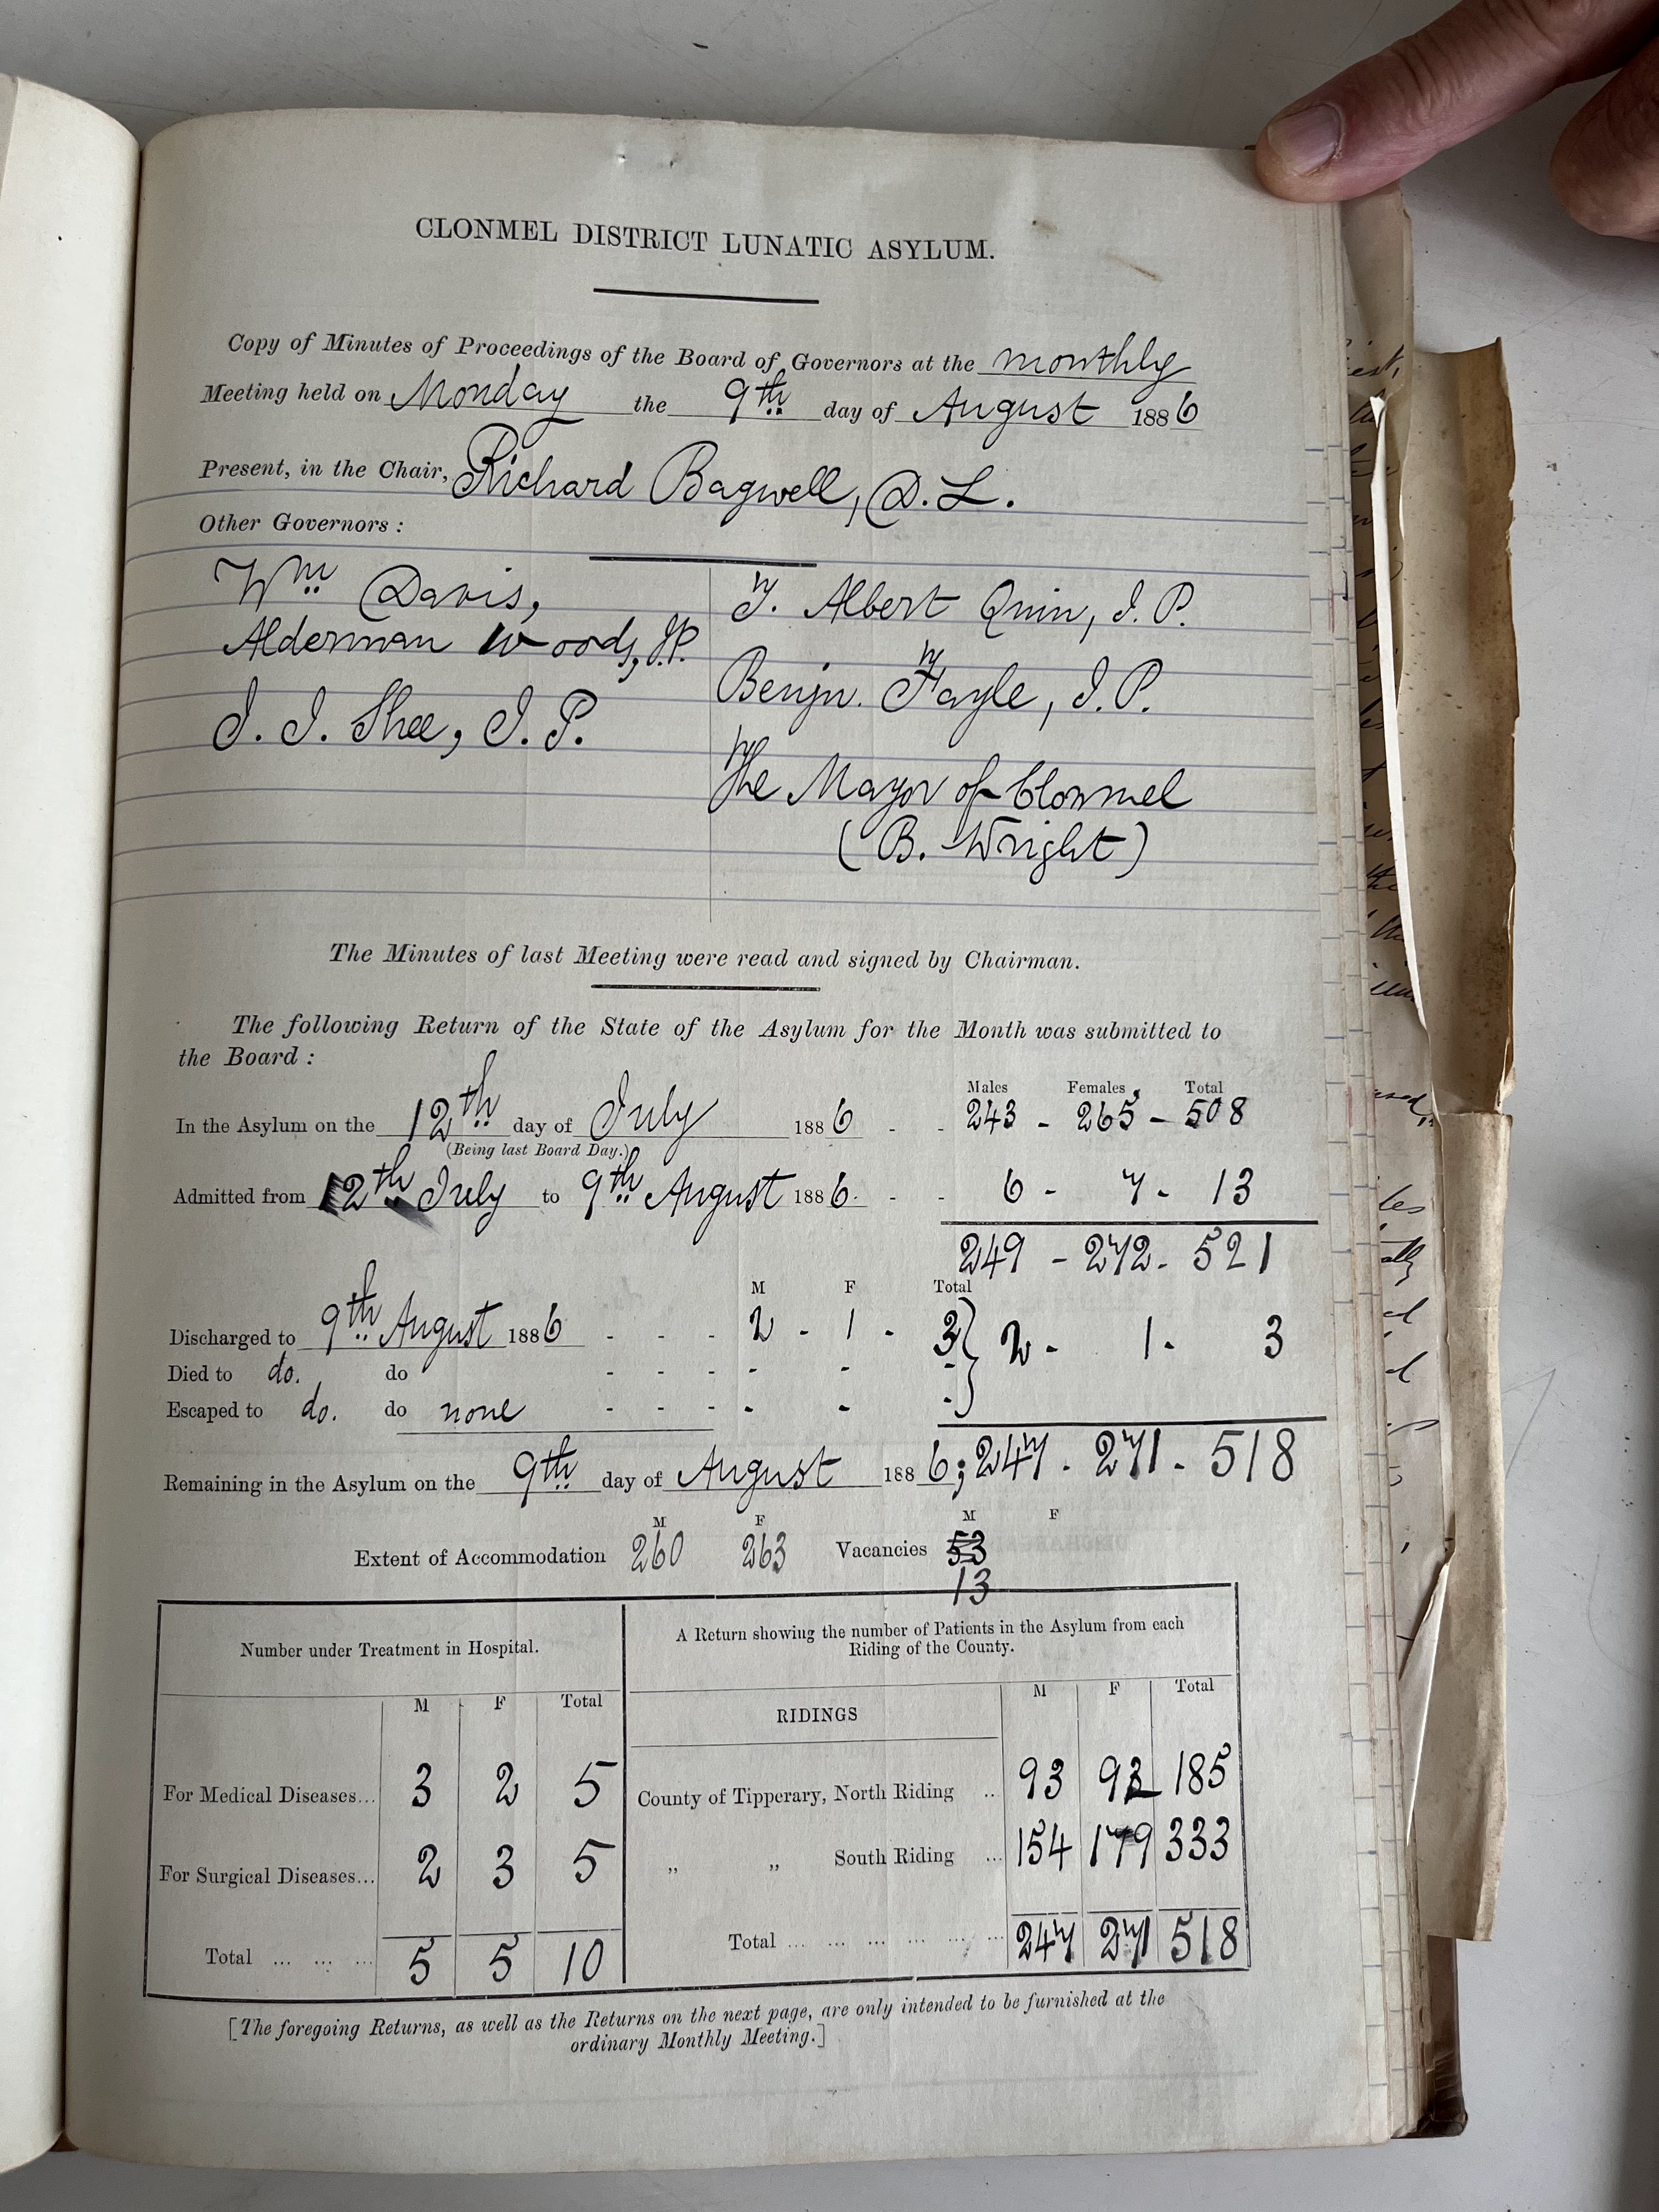 CLONMEL DISTRICT LUNATIC ASYLUM.
Copy of Minutes of Proceedings of the Board of Governors at the monthly
Meeting held on Monday the 9th day of August 1886
Present, in the Chair, Richard Bagwell, D.L.
Other Governors :
Wm Davis,
Alderman Woods, J.P.
J. J. Shee, J. P.
T. Albert Quin, J. P.
Benjn. Fayle, J. P.
The Mayor of Clonmel
(B. Wright)
The Minutes of last Meeting were read and signed by Chairman.
The following Return of the State of the Asylum for the Month was submitted to
the Board :
Males Females Total
In the Asylum on the 12th day of July 1886 - - 243 - 265 - 508
(Being last Board Day.)
Admitted from 12th July to 9th August 1886. - - 6 - 7 - 13
249 - 272 - 521
M F Total
Discharged to 9th August 1886 - - - 2 - 1 - 3 } 2 - 1 - 3
Died to do. do - - - - - -
Escaped to do. do none - - - - - -
Remaining in the Asylum on the 9th day of August 1886; 247 - 271 - 518
M F M F
Extent of Accommodation 260 263 Vacancies 53
13
Number under Treatment in Hospital.
M F Total
For Medical Diseases... 3 2 5
For Surgical Diseases... 2 3 5
Total ... ... ... 5 5 10
A Return showing the number of Patients in the Asylum from each
Riding of the County.
RIDINGS M F Total
County of Tipperary, North Riding .. 93 92 185
„ „ South Riding ... 154 179 333
Total ... ... ... ... ... ... 247 271 518
[The foregoing Returns, as well as the Returns on the next page, are only intended to be furnished at the
ordinary Monthly Meeting.]